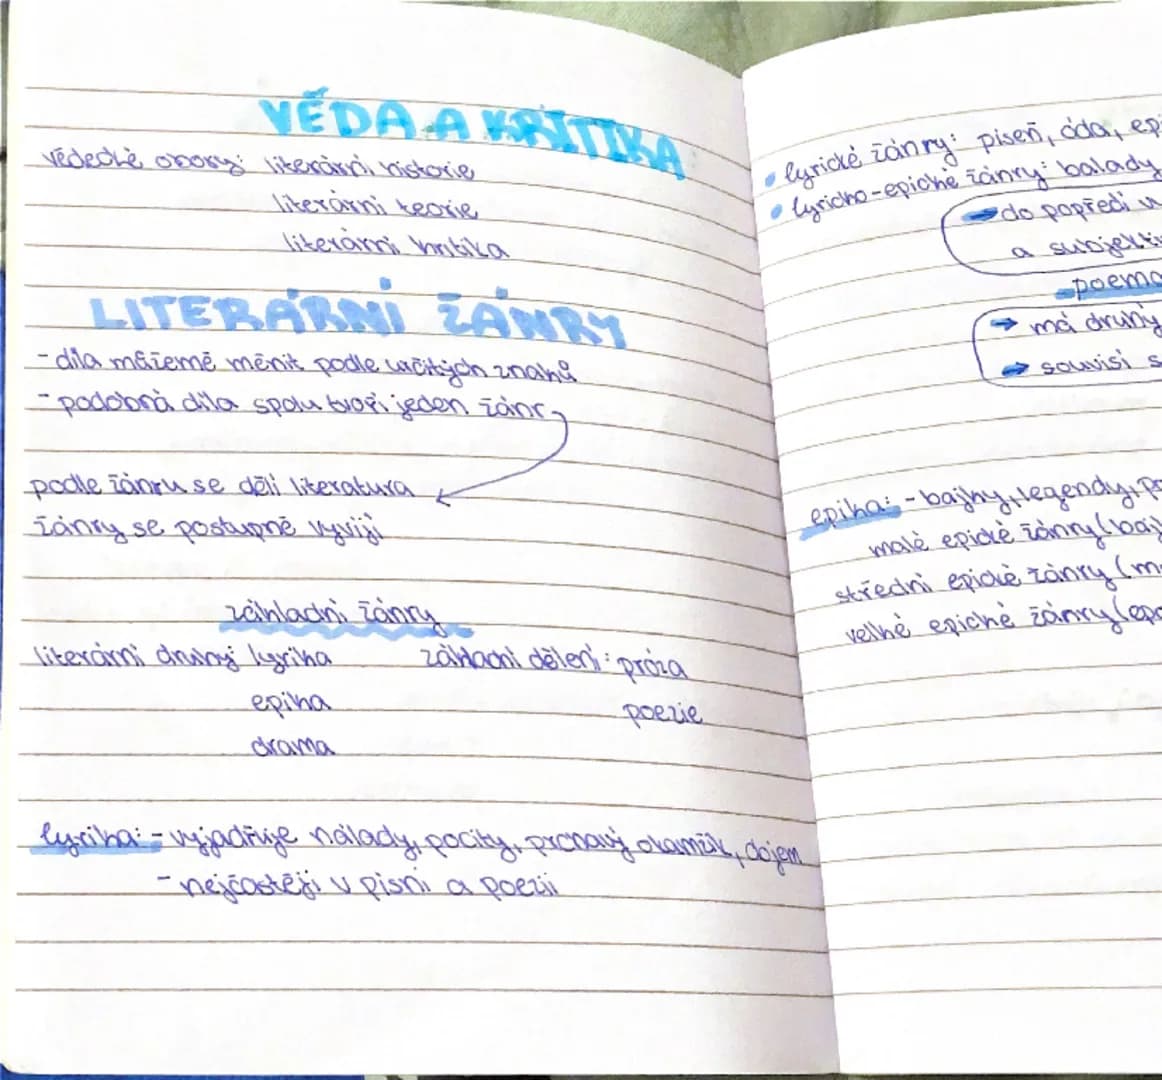 VĚDA A KRITIKA
vědecké obory: literární historie
literární teorie
literární kritika
LITERÁRNÍ ŽÁNRY
- díla můžeme měnit podle určitých znaků
- podobná díla spolu tvoří jeden žánr
podle žánru se dělí literatura
žánry se postupně vyvíjí
základní žánry
literární druhy: lyrika základní dělení: próza
epika poezie
drama
lyrika: - vyjadřuje nálady, pocity, prchavý okamžik, dojem
- nejčastěji v písni a poezii
• lyrické žánry: píseň, óda, epi
• lyricko-epické žánry: balady
do popředí
a subjekti
poema
má druhy
souvisí s
epika: - bajky, legendy, po
malé epické žánry (baj
střední epické žánry (
velké epické žánry (epo